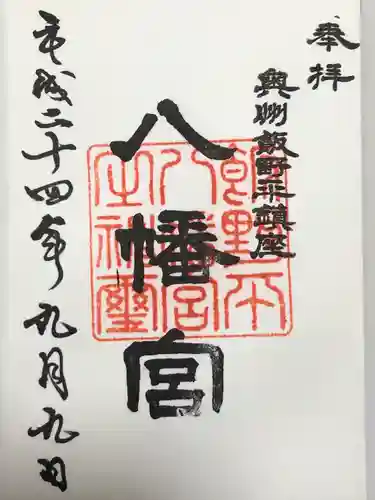 奉拝
奥州飯野平鎮座
八幡宮
平成二十四年九月九日
飯野平
八幡宮
神璽